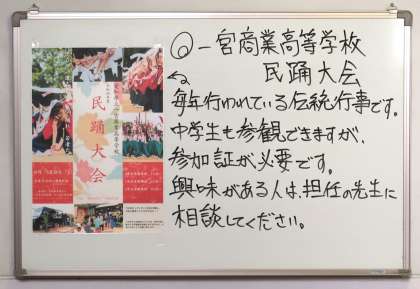 民踊大会
◎一宮商業高等学校
民踊大会
毎年行われている伝統行事です。
中学生も参観できますが、
参加証が必要です。
興味がある人は、担任の先生に
相談してください。